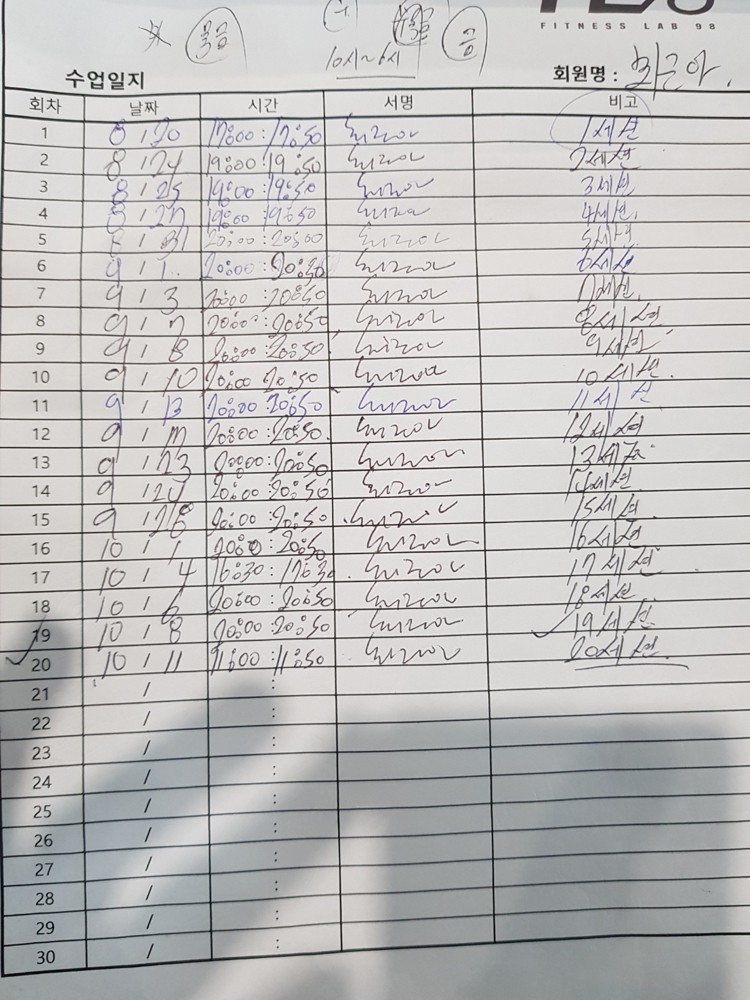 FITNESS LAB 98
10시~6시
수업일지 회원명 : 최근아
회차 날짜 시간 서명 비고
1 8 / 20 17:00 : 17:50 최근아 1세션
2 8 / 24 19:00 : 19:50 최근아 2세션
3 8 / 25 19:00 : 19:50 최근아 3세션
4 8 / 27 19:00 : 19:50 최근아 4세션
5 8 / 31 20:00 : 20:50 최근아 5세션
6 9 / 1 20:00 : 20:50 최근아 6세션
7 9 / 3 20:00 : 20:50 최근아 7세션
8 9 / 7 20:00 : 20:50 최근아 8세션
9 9 / 8 20:00 : 20:50 최근아 9세션
10 9 / 10 20:00 20:50 최근아 10세션
11 9 / 13 20:00 : 20:50 최근아 11세션
12 9 / 17 20:00 : 20:50 최근아 12세션
13 9 / 23 20:00 : 20:50 최근아 13세션
14 9 / 27 20:00 : 20:50 최근아 14세션
15 9 / 28 20:00 : 20:50 최근아 15세션
16 10 / 1 20:00 : 20:50 최근아 16세션
17 10 / 4 16:30 : 17:30 최근아 17세션
18 10 / 6 20:00 : 20:50 최근아 18세션
19 10 / 8 20:00 : 20:50 최근아 19세션
20 10 / 11 11:00 : 11:50 최근아 20세션
21 / :
22 / :
23 / :
24 / :
25 / :
26 / :
27 / :
28 / :
29 / :
30 / :